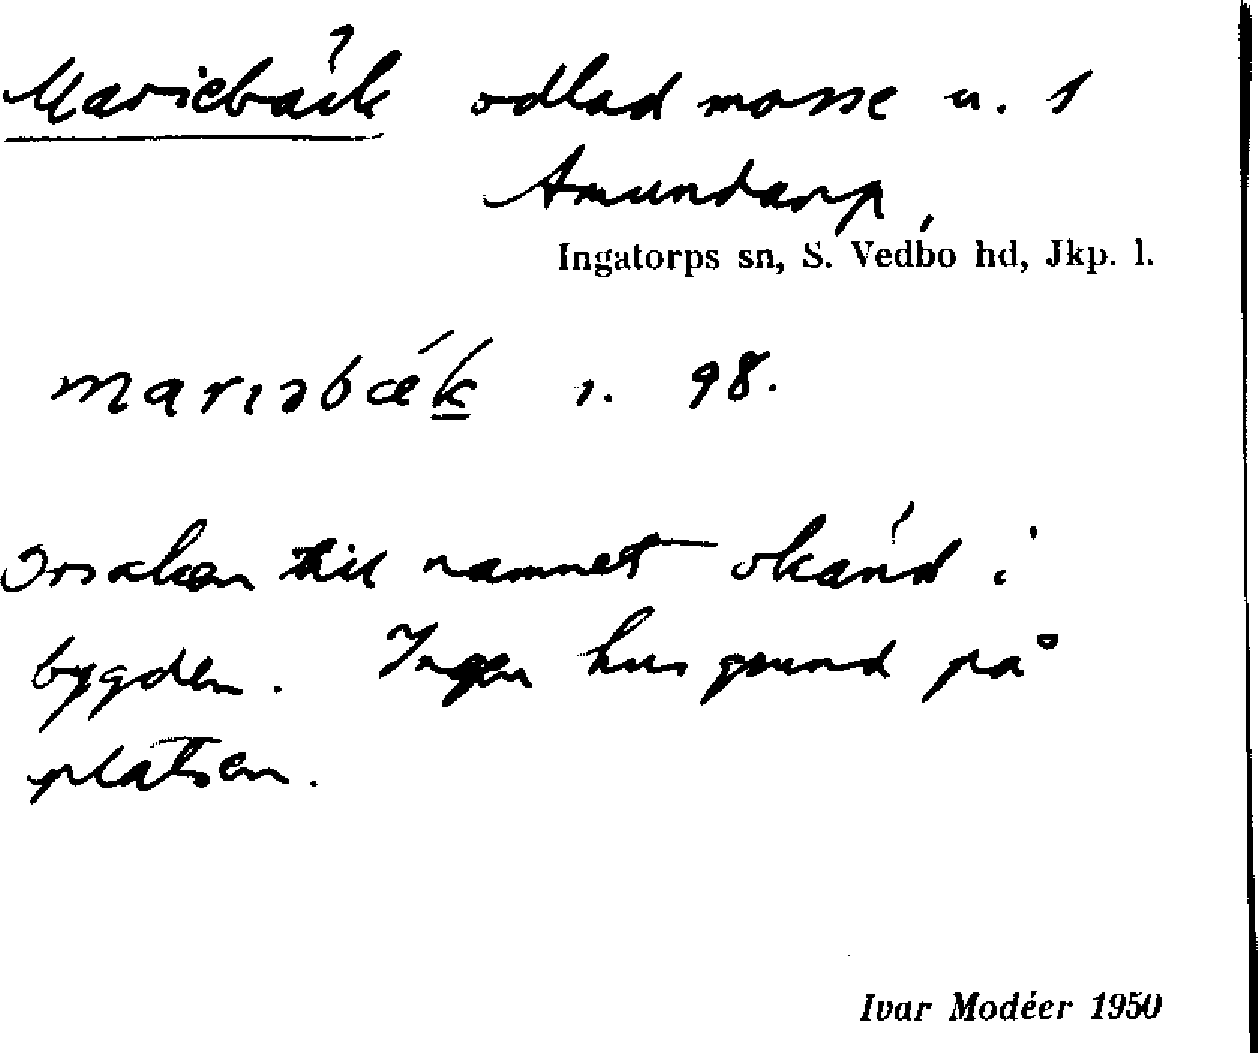 Mariebäck odlad mosse u. 1
Amundarp,
Ingatorps sn, S. Vedbo hd, Jkp. l.
marıəbæk 1. 98.
Orsaken till namnet okänd i
bygden. Ingen husgrund på
platsen.
Ivar Modéer 1950